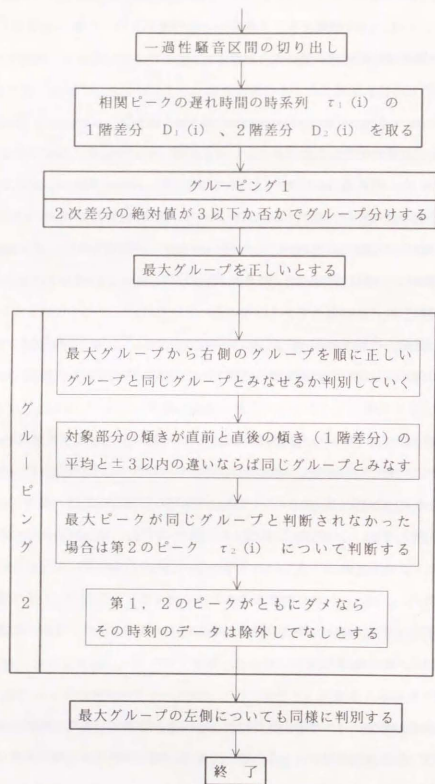 一過性騒音区間の切り出し
相関ピークの遅れ時間の時系列 τ₁(i) の
1階差分 D₁(i) 、2階差分 D₂(i) を取る
グルーピング1
2次差分の絶対値が3以下か否かでグループ分けする
最大グループを正しいとする
グルーピング 2
最大グループから右側のグループを順に正しい
グループと同じグループとみなせるか判別していく
対象部分の傾きが直前と直後の傾き(1階差分)の
平均と±3以内の違いならば同じグループとみなす
最大ピークが同じグループと判断されなかった
場合は第2のピーク τ₂(i) について判断する
第1,2のピークがともにダメなら
その時刻のデータは除外してなしとする
最大グループの左側についても同様に判別する
終 了